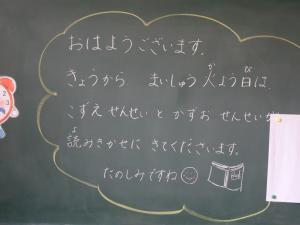 おはようございます。
きょうから まいしゅう 火よう日は、
こずえ せんせい と かずお せんせいが
読みきかせに きてくださいます。
たのしみですね